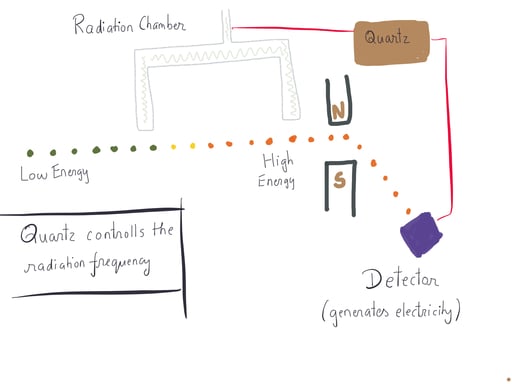 Radiation Chamber
Quartz
N
Low Energy
High
Energy
S
Quartz controlls the
radiation frequency
Detector
(generates electricity)